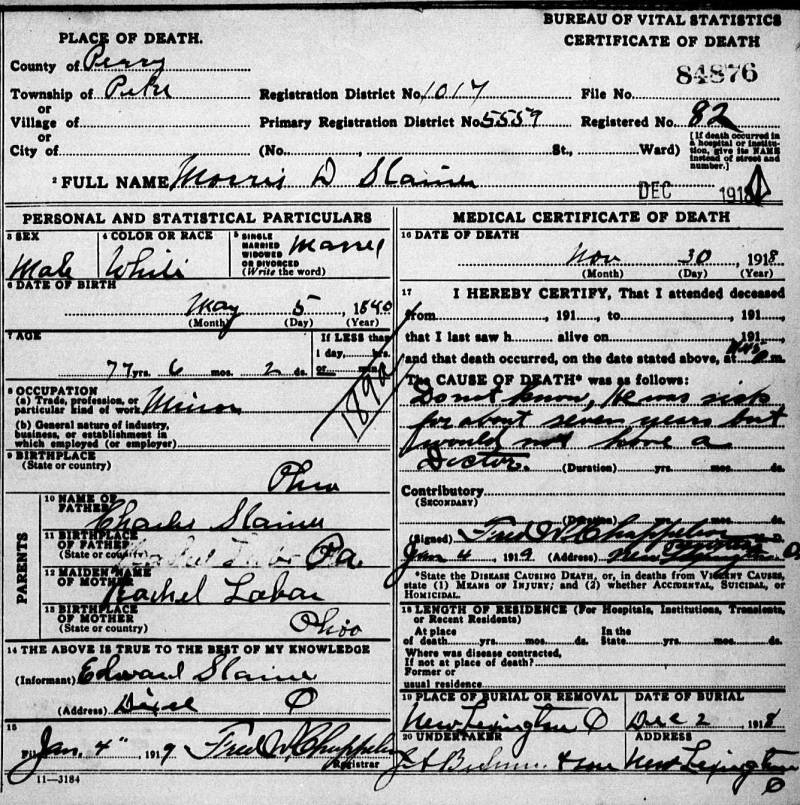 BUREAU OF VITAL STATISTICS
CERTIFICATE OF DEATH
PLACE OF DEATH.
County of Perry
Township of Pike Registration District No. 1017 File No. 84876
or
Village of Primary Registration District No. 5559 Registered No. 82
or
City of (No. , St., Ward) [If death occurred in a hospital or institution, give its NAME instead of street and number.]
2 FULL NAME Morris D Slaine
DEC 1918
PERSONAL AND STATISTICAL PARTICULARS
3 SEX Male
4 COLOR OR RACE White
5 SINGLE MARRIED WIDOWED OR DIVORCED (Write the word)
6 DATE OF BIRTH
May 5, 1840
(Month) (Day) (Year)
7 AGE
77 yrs. 6 mos. 2 ds.
If LESS than 1 day, hrs. or min.
189a
8 OCCUPATION
(a) Trade, profession, or particular kind of work Minor
(b) General nature of industry, business, or establishment in which employed (or employer)
9 BIRTHPLACE
(State or country)
Ohio
PARENTS
10 NAME OF FATHER
Charles Slaine
11 BIRTHPLACE OF FATHER (State or country) Pa.
12 MAIDEN NAME OF MOTHER
Rachel Labar
13 BIRTHPLACE OF MOTHER (State or country) Ohio
14 THE ABOVE IS TRUE TO THE BEST OF MY KNOWLEDGE
(Informant) Edward Slaine
(Address) O
15
Filed Jan. 4", 1919 Fred W. Chuppelin
Registrar
11—3184
MEDICAL CERTIFICATE OF DEATH
16 DATE OF DEATH
Nov 30, 1918
(Month) (Day) (Year)
17 I HEREBY CERTIFY, That I attended deceased
from , 191 , to , 191 ,
that I last saw h alive on , 191 ,
and that death occurred, on the date stated above, at m.
The CAUSE OF DEATH* was as follows:
Do not know, He was sick
for about seven years but
would not have a
Doctor.
(Duration) yrs. mos. ds.
Contributory
(SECONDARY)
(Duration) yrs. mos. ds.
(Signed) Fred W. Chuppelin
Jan 4, 1919 (Address) New Lexington. O
*State the DISEASE CAUSING DEATH, or, in deaths from VIOLENT CAUSES, state (1) MEANS OF INJURY; and (2) whether ACCIDENTAL, SUICIDAL, or HOMICIDAL.
18 LENGTH OF RESIDENCE (For Hospitals, Institutions, Transients, or Recent Residents)
At place of death yrs. mos. ds. In the State yrs. mos. ds.
Where was disease contracted, If not at place of death?
Former or usual residence
19 PLACE OF BURIAL OR REMOVAL
New Lexington O
DATE OF BURIAL
Dec 2, 1918
20 UNDERTAKER
J A & son
ADDRESS
New Lexington
O